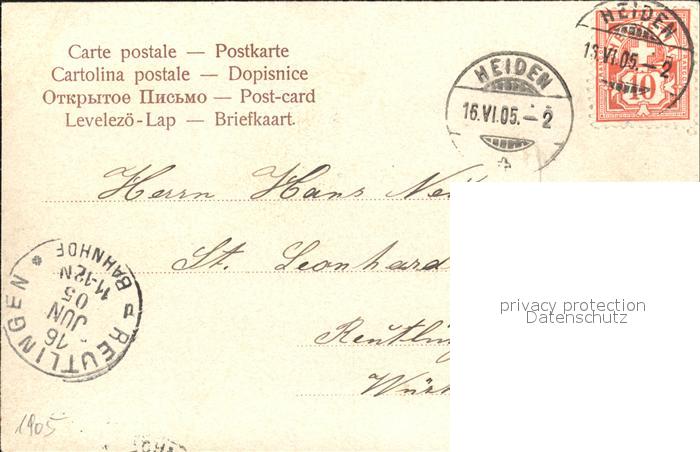 Carte postale — Postkarte
Cartolina postale — Dopisnice
Открытое Письмо — Post-card
Levelezö-Lap — Briefkaart.
HEIDEN
16.VI.05.–2
HEIDEN
16.VI.05.–2
10
Herrn Hans
St. Leonhard
REUTLINGEN
BAHNHOF
16
JUN
05
11-12N
privacy protection
Datenschutz
1905